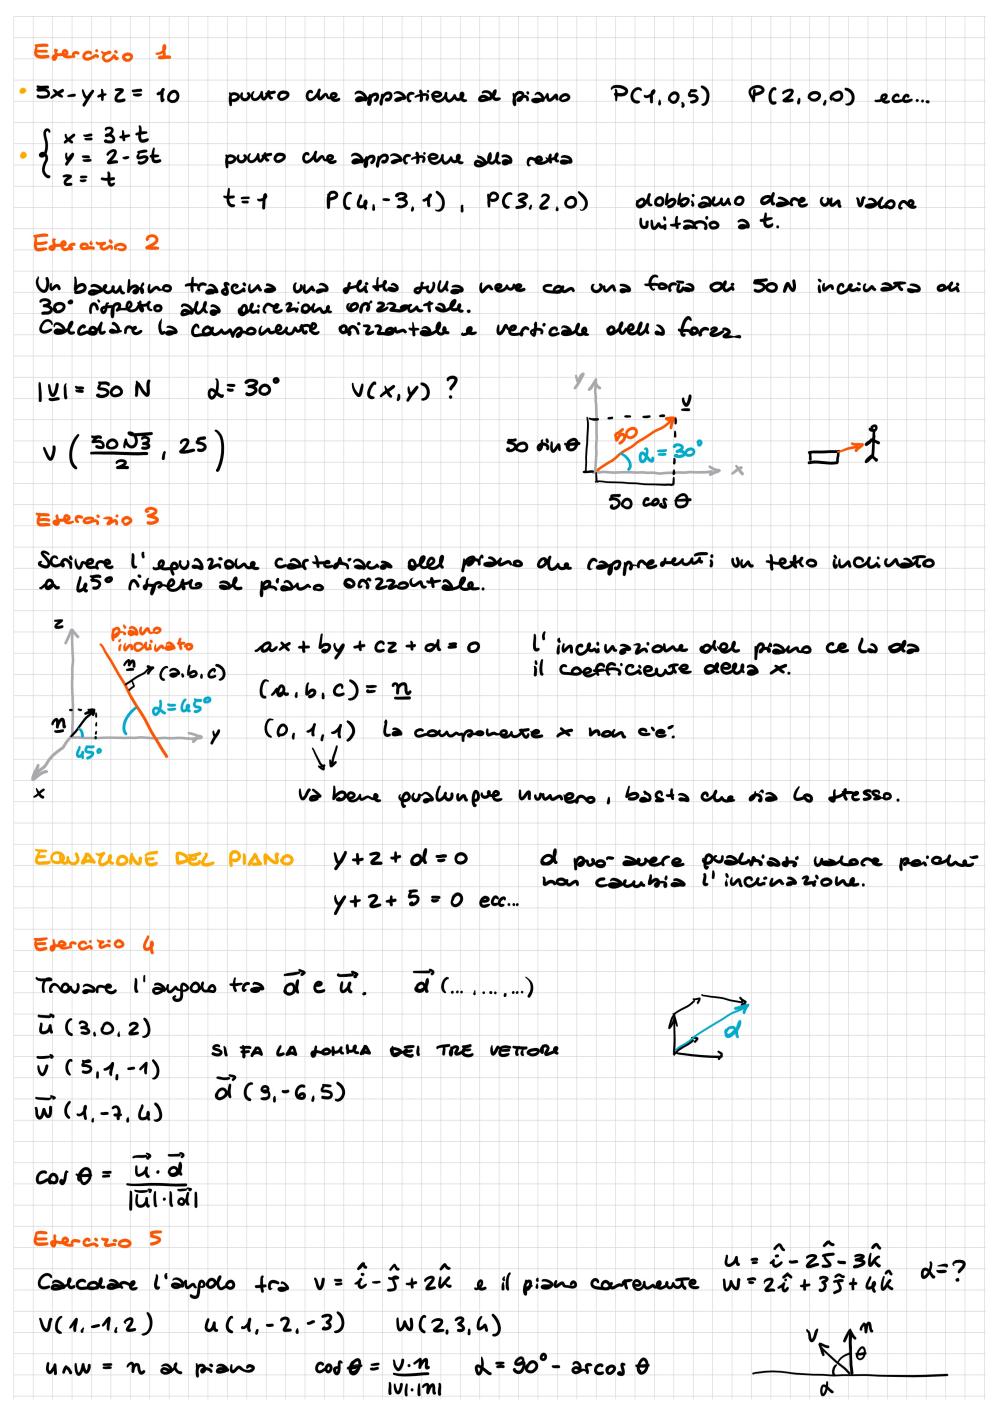 Esercizio 1
• 5x - y + z = 10 punto che appartiene al piano P(1,0,5) P(2,0,0) ecc...
• { x = 3+t
y = 2-5t punto che appartiene alla retta
z = t
t = 1 P(4,-3,1) , P(3,2,0) dobbiamo dare un valore
unitario a t.
Esercizio 2
Un bambino trascina una slitta sulla neve con una forza di 50N inclinata di
30° rispetto alla direzione orizzontale.
Calcolare la componente orizzontale e verticale della forza.
|v| = 50 N α = 30° v(x,y) ?
v ( 50√3/2 , 25 )
y
v
50 sin θ
50
α = 30°
x
50 cos θ
Esercizio 3
Scrivere l'equazione cartesiana del piano che rappresenti un tetto inclinato
a 45° rispetto al piano orizzontale.
z
piano
inclinato
n
(a,b,c)
α=45°
n
45°
y
x
ax + by + cz + d = 0 l'inclinazione del piano ce la da
il coefficiente della x.
(a,b,c) = n
(0,1,1) la componente x non c'è.
va bene qualunque numero, basta che sia lo stesso.
EQUAZIONE DEL PIANO y+z+d=0 d può avere qualsiasi valore poiché
non cambia l'inclinazione.
y+z+5=0 ecc...
Esercizio 4
Trovare l'angolo tra d e u. d (...,...,...)
u (3,0,2)
d
SI FA LA SOMMA DEI TRE VETTORI
v (5,1,-1)
d (9,-6,5)
w (1,-7,4)
cos θ = u · d / |u|·|d|
Esercizio 5
u = î - 2ĵ - 3k̂
Calcolare l'angolo tra v = î - ĵ + 2k̂ e il piano contenente w = 2î + 3ĵ + 4k̂ α=?
v(1,-1,2) u(1,-2,-3) w(2,3,4)
u∧w = n al piano cos θ = v·n / |v|·|n| α = 90° - arcos θ
v
n
θ
α